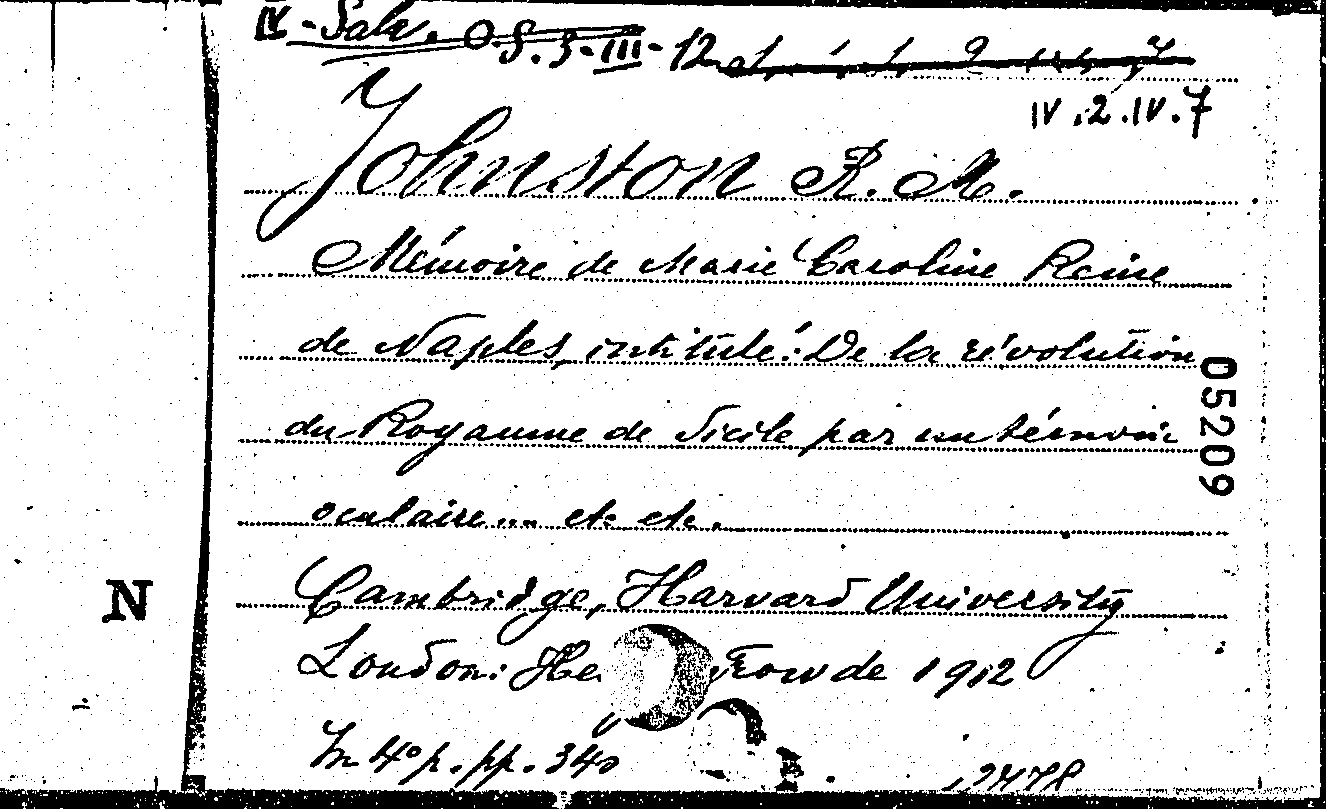 IV - Sala. O S. 3-III-12
IV.2.IV.7
Johnston R. M.
Mémoire de Marie Caroline Reine
de Naples, intitulé: De la révolution
du Royaume de Sicile par un témoin
oculaire... etc etc.
Cambridge, Harvard University
London: He Frowde 1912
In 4° p. pp. 340
2478
05209
N